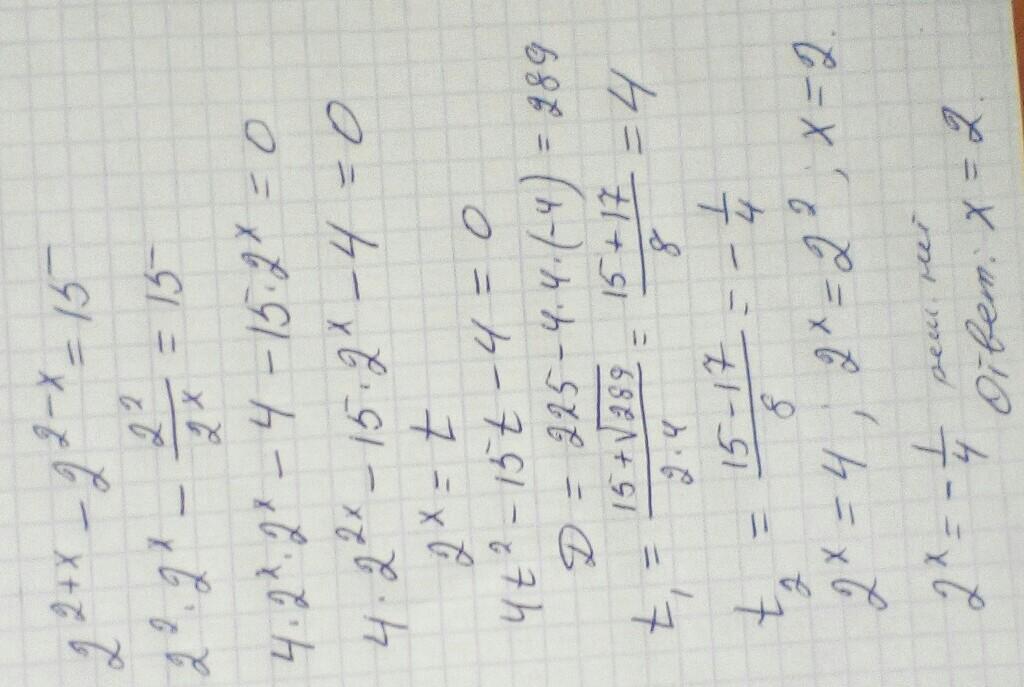 2^{2+x} - 2^{2-x} = 15
2^2 · 2^x - \frac{2^2}{2^x} = 15
4 · 2^x · 2^x - 4 - 15 · 2^x = 0
4 · 2^{2x} - 15 · 2^x - 4 = 0
2^x = t
4t^2 - 15t - 4 = 0
D = 225 - 4·4·(-4) = 289
t_1 = \frac{15+√289}{2·4} = \frac{15+17}{8} = 4
t_2 = \frac{15-17}{8} = -\frac{1}{4}
2^x = 4, 2^x = 2^2, x = 2.
2^x = -\frac{1}{4} реш. нет
Ответ: x = 2.